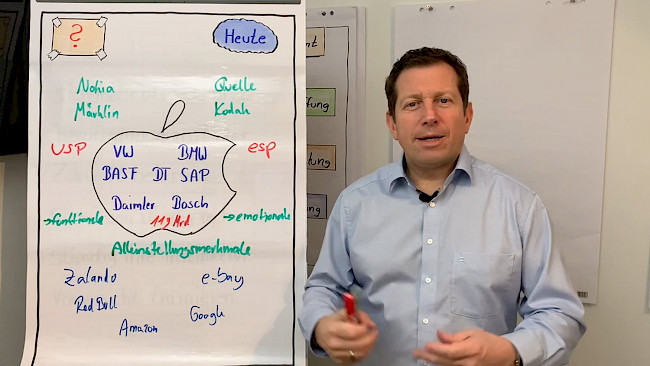 ?
Heute
Nokia
Quelle
Märklin
Kodak
USP
esp
VW
BMW
BASF
DT
SAP
Daimler
Bosch
→funktionale
→emotionale
Alleinstellungsmerkmale
Zalando
e-bay
Red Bull
Google
Amazon